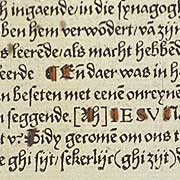 h ingaende/ in die synagogh
ben hem verwōdert/ vā zijn
s leerde/ als macht hebbēd
eerde ¶ En daer was in h
en beseten met eenē onreynē
n seggende. [Ah] IESV
t v: Bidy gecomē om ons t
e ghi sijt/ sekerlijc (ghi zijt)